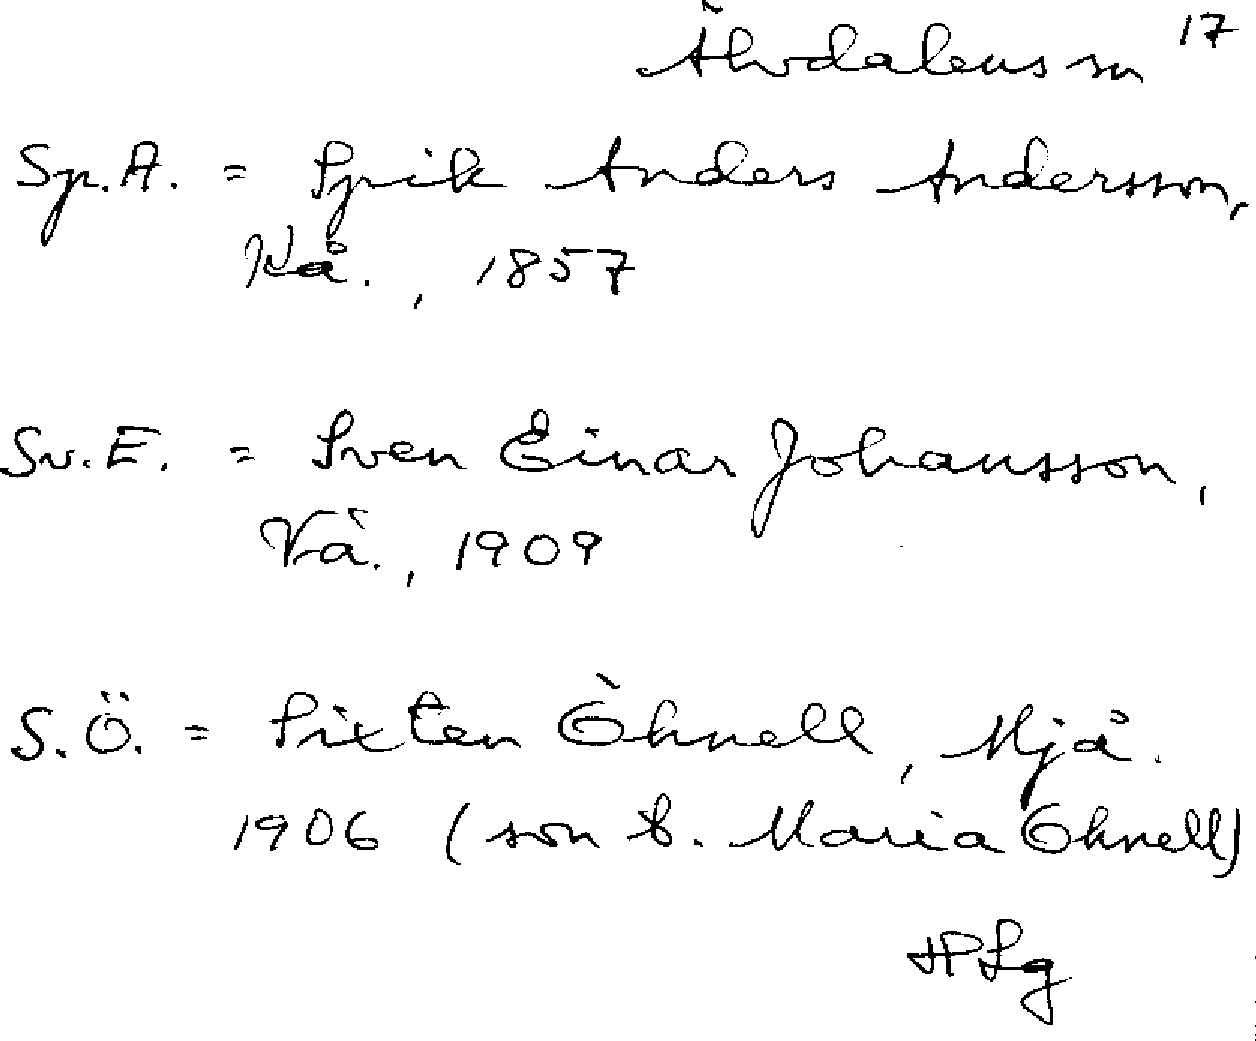 Älvdalens sn 17
Sp.A. = Spjik Anders Andersson,
Kå., 1857
Sv.E. = Sven Einar Johansson,
Vå., 1909
S.Ö. = Sixten Öhnell, Mjå.
1906 (son t. Maria Öhnell)
HPLg